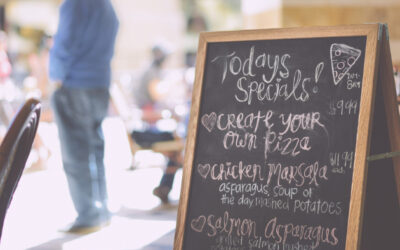 Todays Specials!
Create your own Pizza
$9.99
Chicken Marsala
$11.99
asparagus, soup of the day, lined potatoes
Salmon Asparagus
grilled salmon